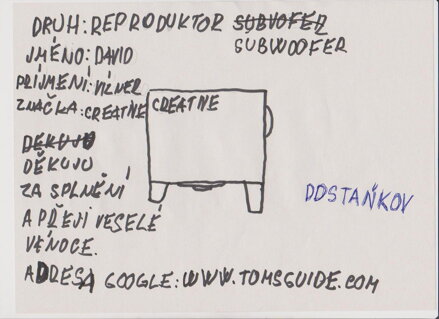 DRUH: REPRODUKTOR SUBVOFER
SUBWOOFER
JMÉNO: DAVID
PŘÍJMENÍ: VIZNER
ZNAČKA: CREATIVE
CREATIVE
DĚKUJU
DĚKUJU
ZA SPLNĚNÍ
A PŘEJI VESELÉ
VÁNOCE.
DDSTAŇKOV
ADRESA GOOGLE: WWW.TOMSGUIDE.COM